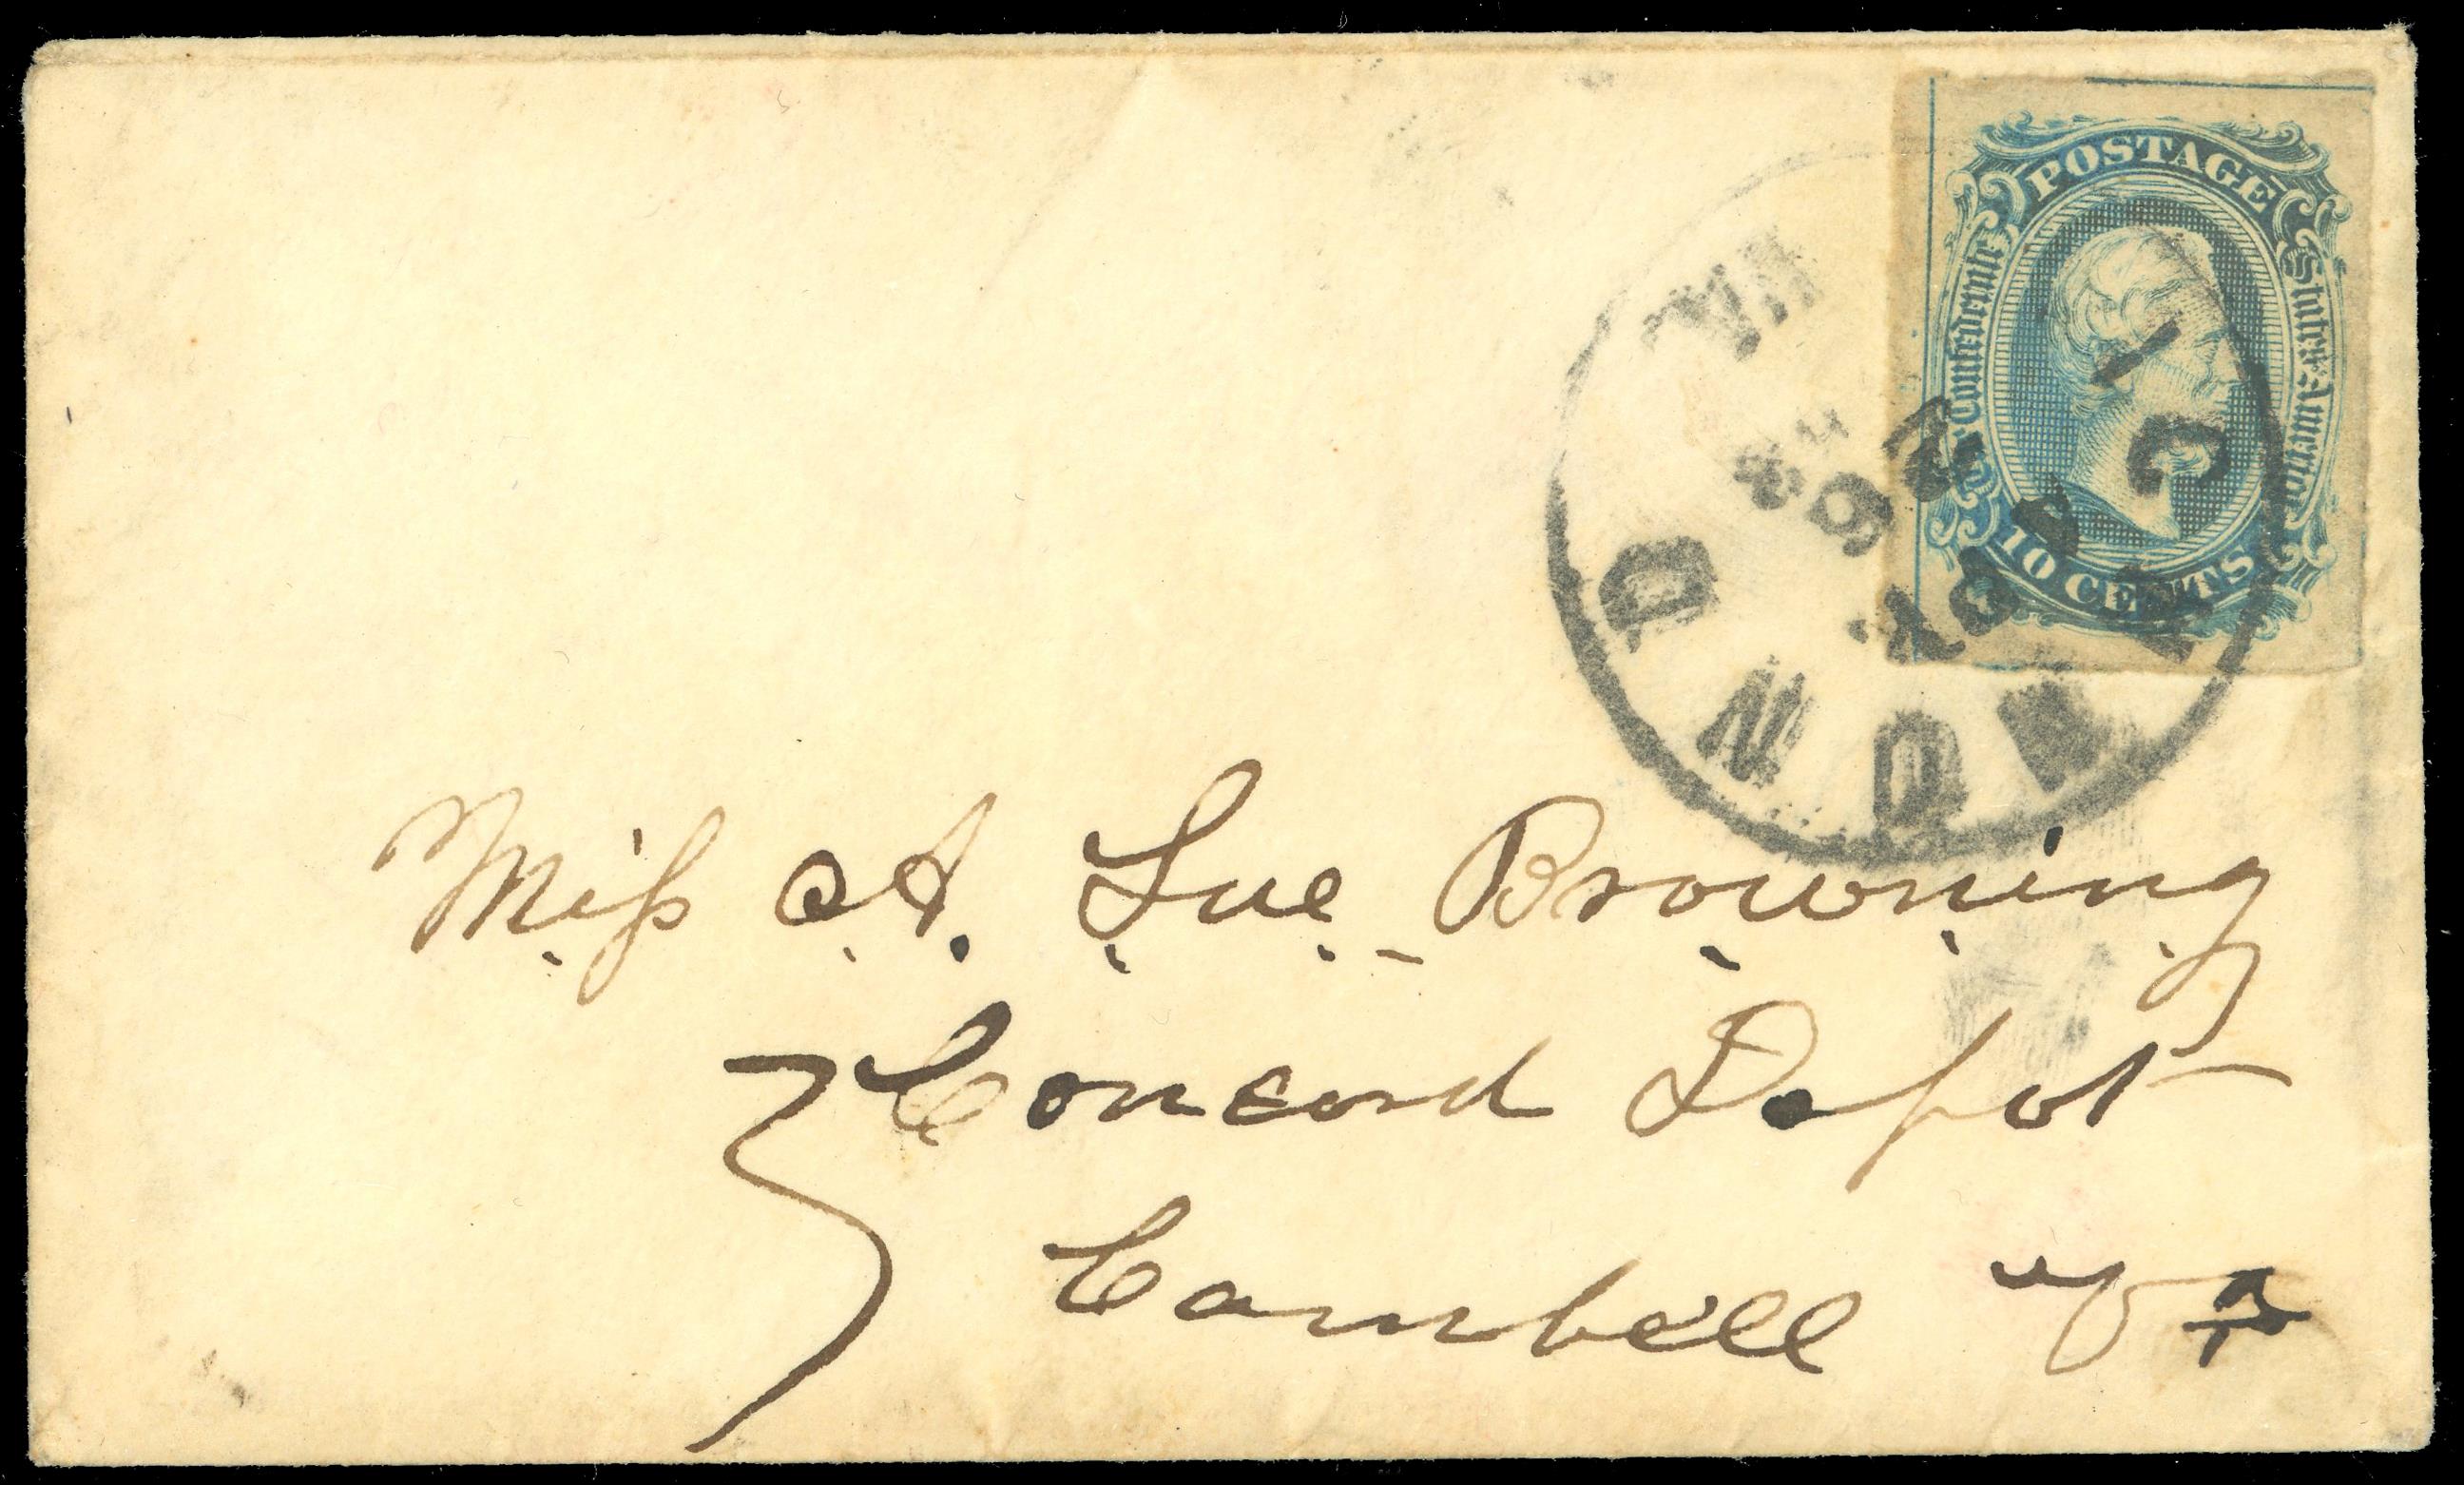 POSTAGE
Confederate States America
10 CENTS
VA.
Miſs A. Sue Browning
Concord Depot
Cambell Va